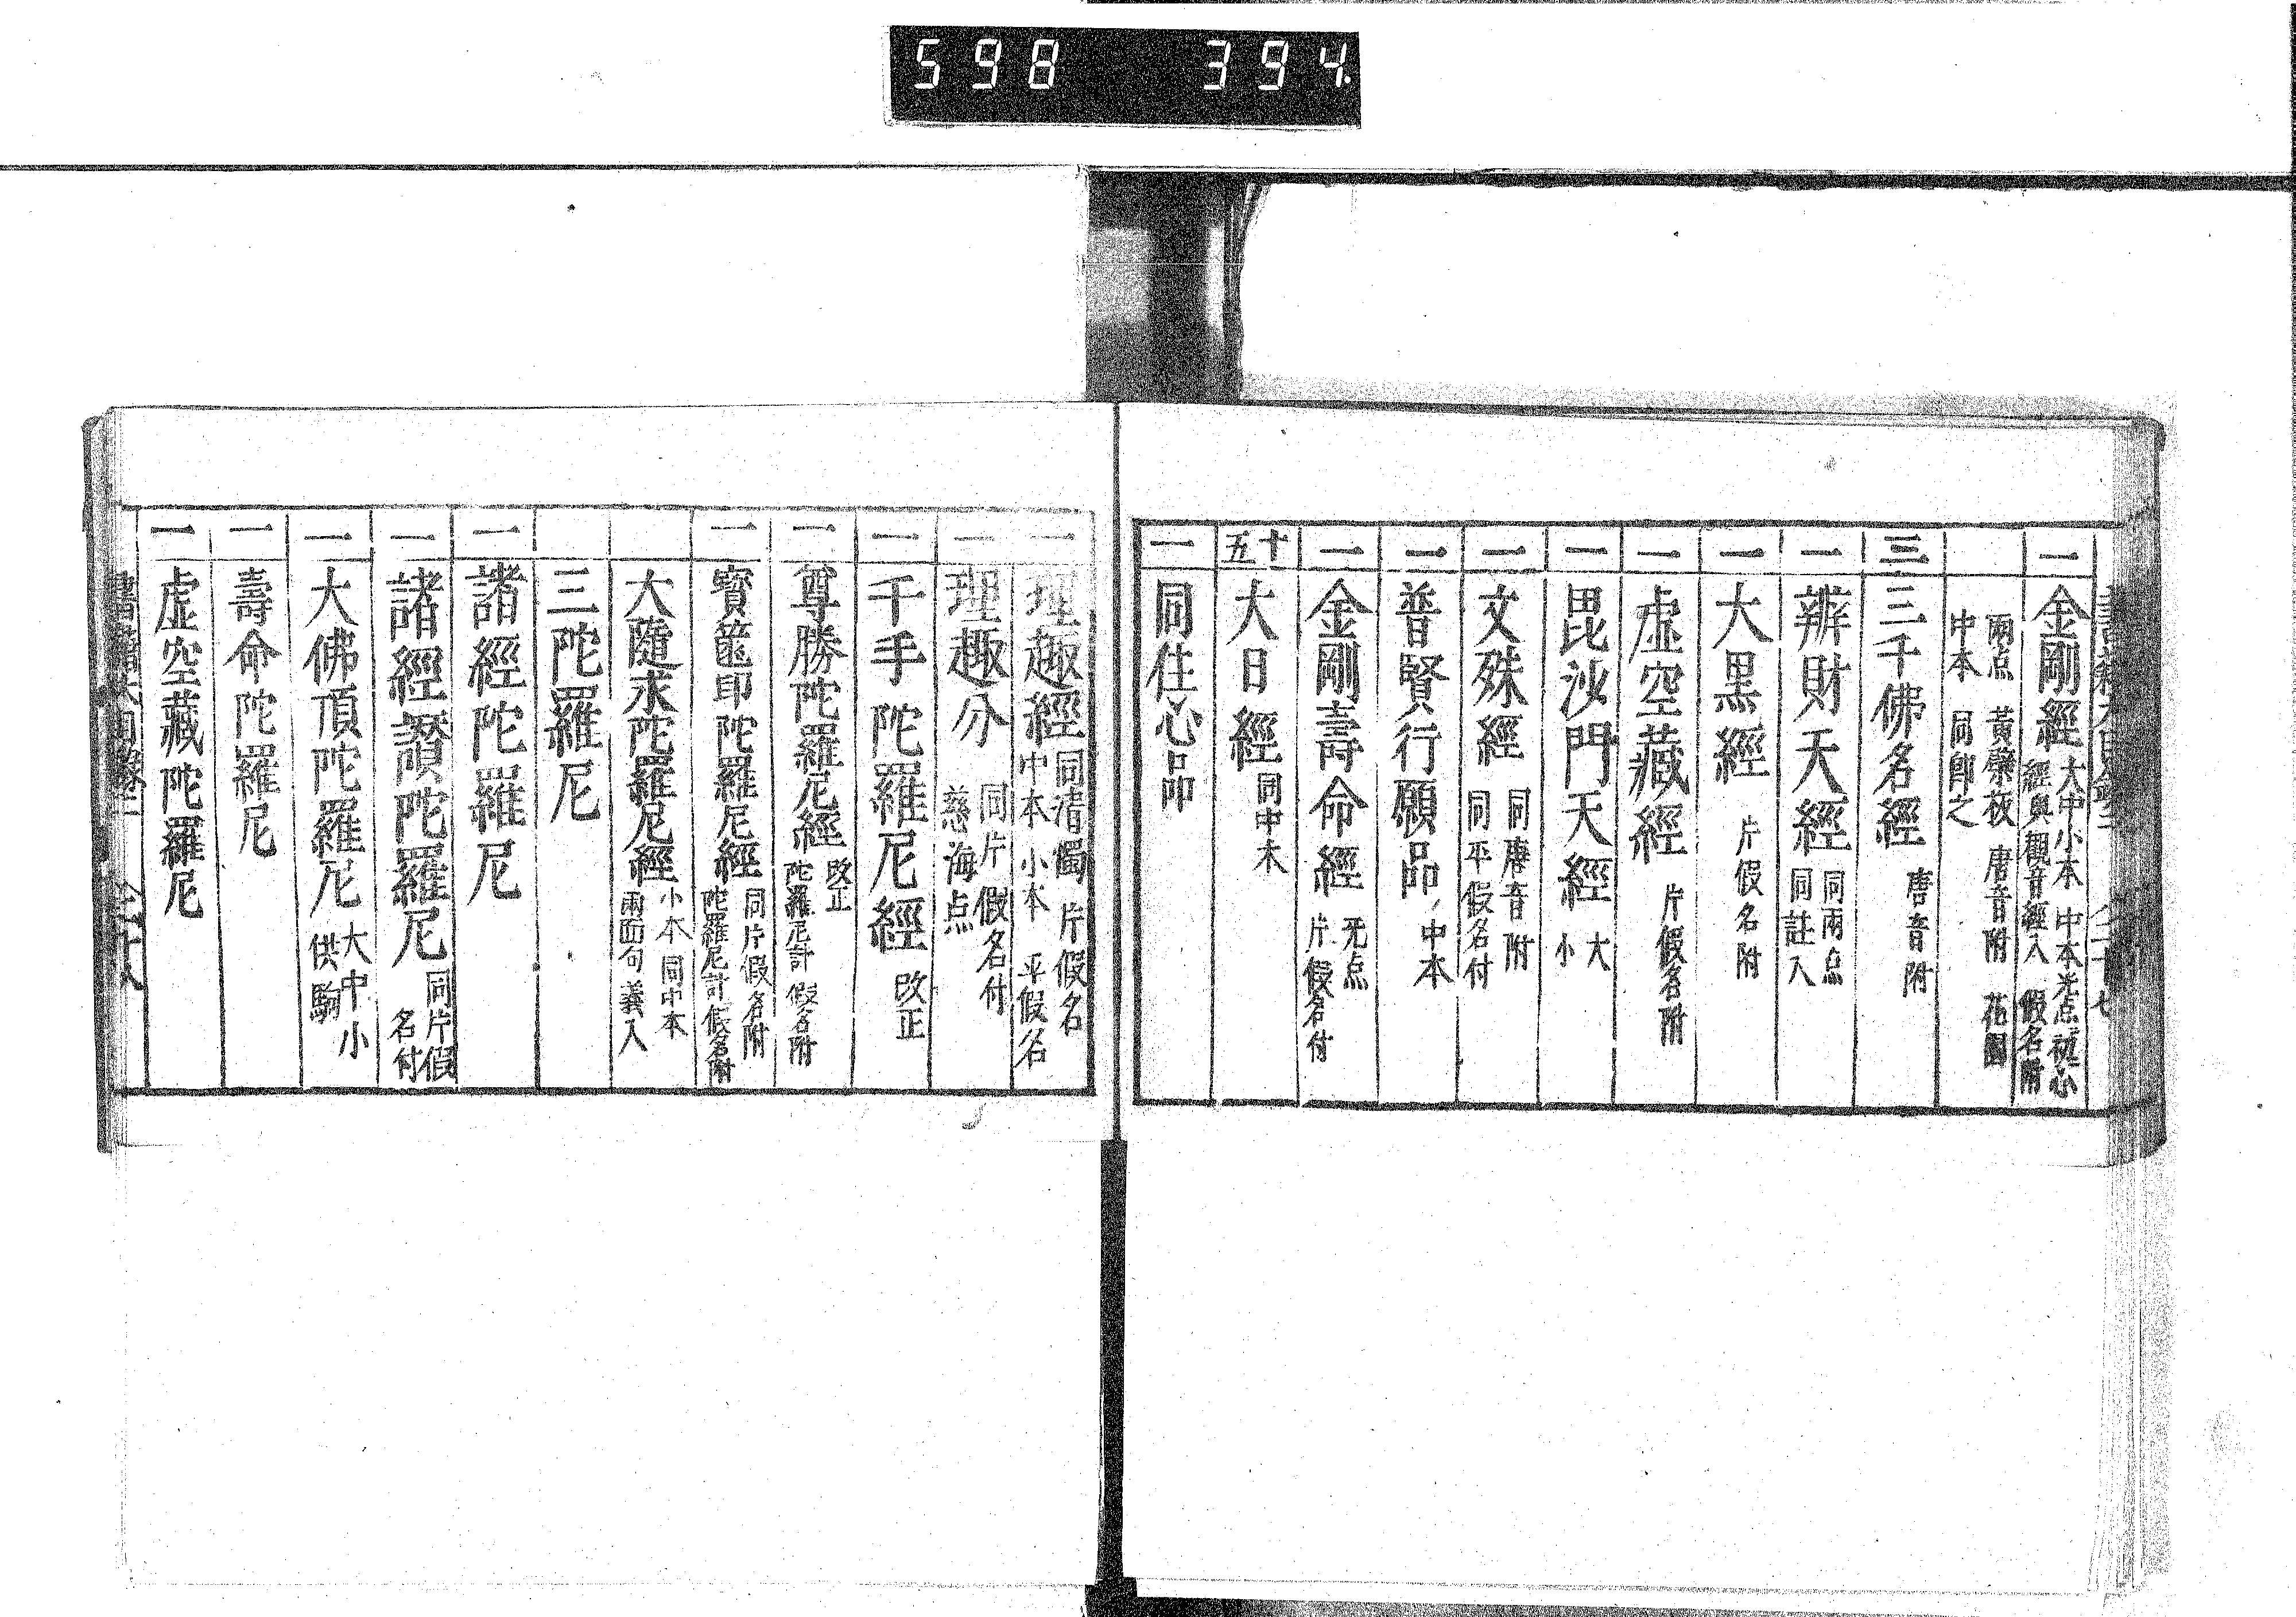 598 394.
一 金剛經 大中小本 中本无点 經心
經與觀音經入 假名附
兩点 黃檗板 唐音附 花圖
中本 同卽之
三 三千佛名經 唐音附
一 辨財天經 同兩点
同註入
一 大黒經 片假名附
一 虛空藏經 片假名附
一 毘沙門天經 大
小
一 文殊經 同唐音附
同平假名付
一 普賢行願品 中本
一 金剛壽命經 无点
片假名付
十五 大日經 同中本
一 同住心品
一 理趣經 同清濁 片假名
中本 小本 平假名
一 理趣分 同片假名付
慈海点
一 千手陀羅尼經 改正
一 尊勝陀羅尼經 改正
陀羅尼計 假名附
一 寶篋印陀羅尼經 同片假名附
陀羅尼計 假名附
大隨求陀羅尼經 小本 同中本
兩面句義入
三陀羅尼
一 諸經陀羅尼
一 諸經讚陀羅尼 同片假
名付
一 大佛頂陀羅尼 大中小
供駒
一 壽命陀羅尼
一 虛空藏陀羅尼